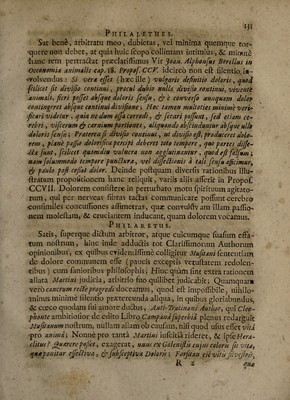 131
PHILALETHES.
Sat bene, arbitratu meo, dubitas, vel minima quemque tor-
quere non debet, at quià huic scopo collimans intimùs, & mirùm
hanc rem pertractat præclarissimus Vir Joan. Alphonsus Borellus in
Oeconomia animalis cap. 18. Propos. CCV. idcirco non est silentio in-
volvendus: Si vera esset (hæc ille) vulgaris definitio doloris, quod
scilicet sit divisio continui, procul dubio nulla divisio continui, vivente
animali, fieri posset absque doloris sensu, & è converso unquam dolor
contingeret absque continui divisione. Hoc tamen multoties minimè veri-
ficari videtur, quia ex dum ossa corrodi, & secari possunt, sed etiam ce-
rebri, viscerum & carnium portiones, aliquando abscinduntur absque ullo
doloris sensu: Præterea si divisio continui, ut divisio est, produceret dolo-
rem, plane posset dolorifica percipi deberet toto tempore, quo partes disse-
ctæ sunt, scilicet quamdiù vulnera non agglutinantur, quod est falsum;
nam solummodo tempore puncturæ, vel dissectionis à tali sensu afficimur,
& paulò post cessat dolor. Deinde postquàm diversis rationibus illu-
stratum propositionem hanc reliquit, variis aliis asserit in Propos.
CCVII. Dolorem consistere in perturbato motu spirituum agitato-
rum, qui per nerveas fibras tactas communicare possunt cerebro
consimiles concussiones asymmetras, quæ convulsivam illam passio-
nem molestam, & cruciantem inducant, quam dolorem vocamus.
PHILARETUS.
Satis, superque dictum arbitror, atque cuicumque suasum essa-
tum nostrum, hinc inde addustis tot Clarissimorum Authorum
opinionibus, ex quibus evidentissimè colligitur Musitani sententiam
de dolore communem esse (paucis exceptis vetustatem redolen-
tibus) cum sanioribus philosophis: Hinc quàm sint extra rationem
allata Martius judicia, arbitrio suo quilibet judicabit: Quamquam
verò cancrum rectè progredi docueram, quod est impossibile, nihilo-
minus minimè silentio prætereunda aliqua, in quibus gloriabundus,
& cæco quodam sui amore ductus, Anti-Trutinani Author, qui Cleo-
phontis ambitiosior de edito Libro Campana superbiâ plenus redarguit
Musitanum nostrum, nullam aliam ob causam, nisi quod usus esset vitâ
pro animâ; Nonne pro tantâ Martini inscitiâ rideret, & ipse Hera-
clitus? Quærere posset, exagerat, num ex Galenisticis cujus coloris sit vita,
quæ ponitur effectiva, & susceptiva Doloris; Forsitan est vita silvestris,
R 2 quæ